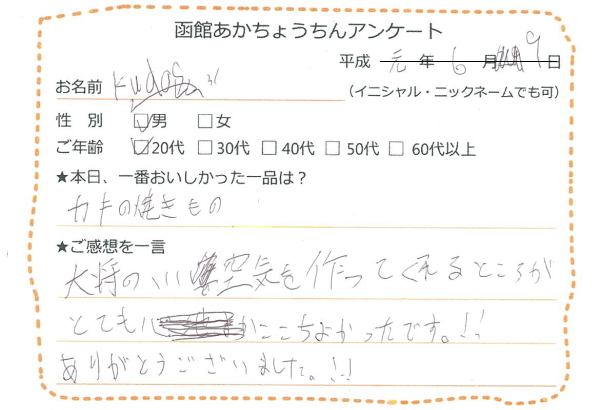 函館あかちょうちんアンケート
平成 元 年 6 月 9 日
お名前
(イニシャル・ニックネームでも可)
性 別 ☑男 □女
ご年齢 ☑20代 □30代 □40代 □50代 □60代以上
★本日、一番おいしかった一品は?
カキの焼きもの
★ご感想を一言
大将のいい空気を作ってくれるところが
とても かここちよかったです。!!
ありがとうございました。!!